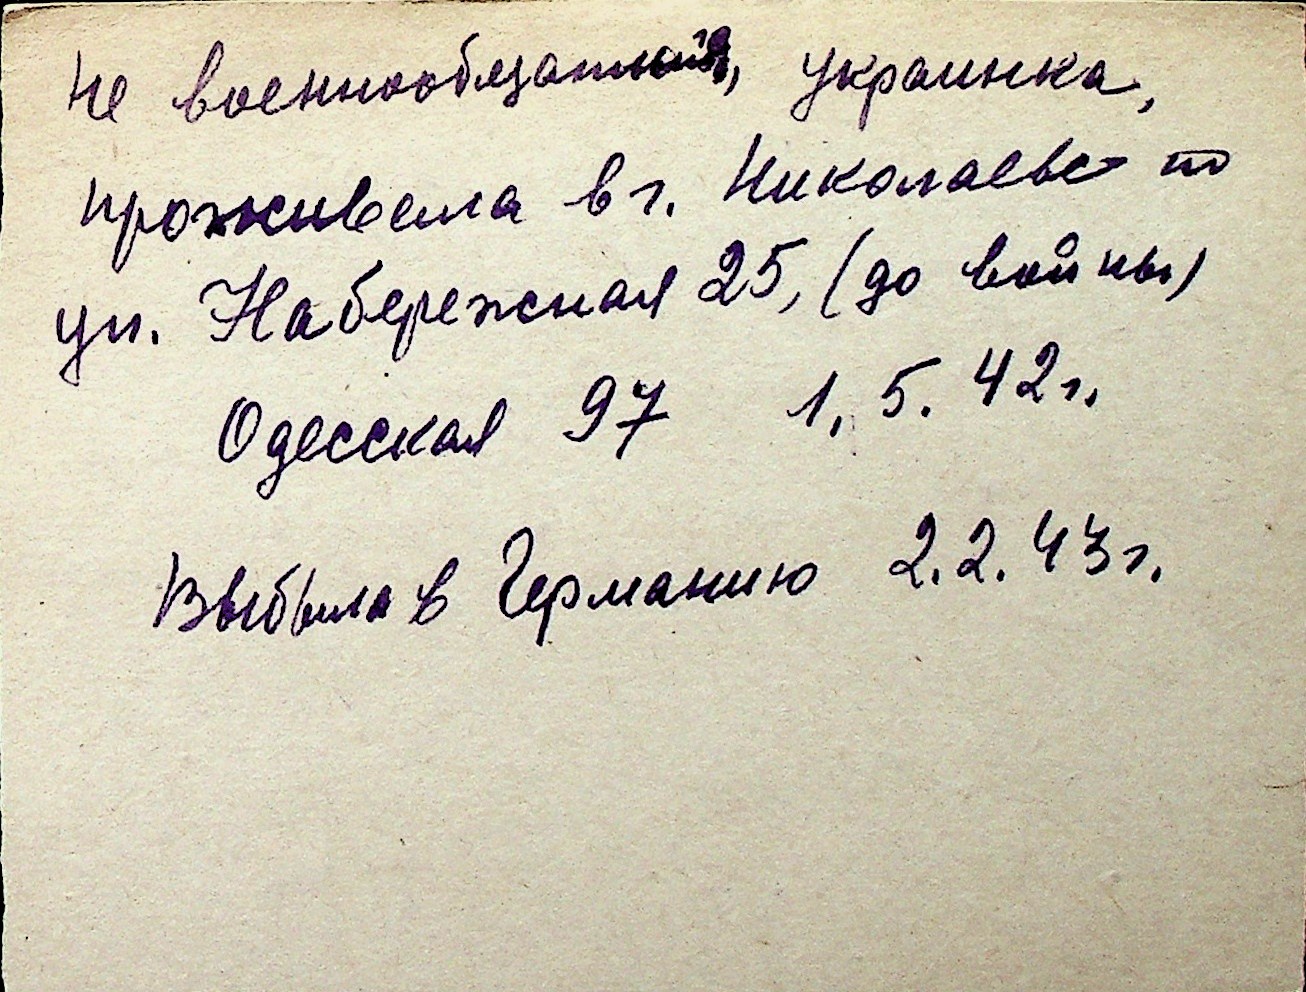 не военнообязанная, украинка,
проживала в г. Николаеве по
ул. Набережная 25, (до войны)
Одесская 97 1.5.42г.
Выбыла в Германию 2.2.43г.